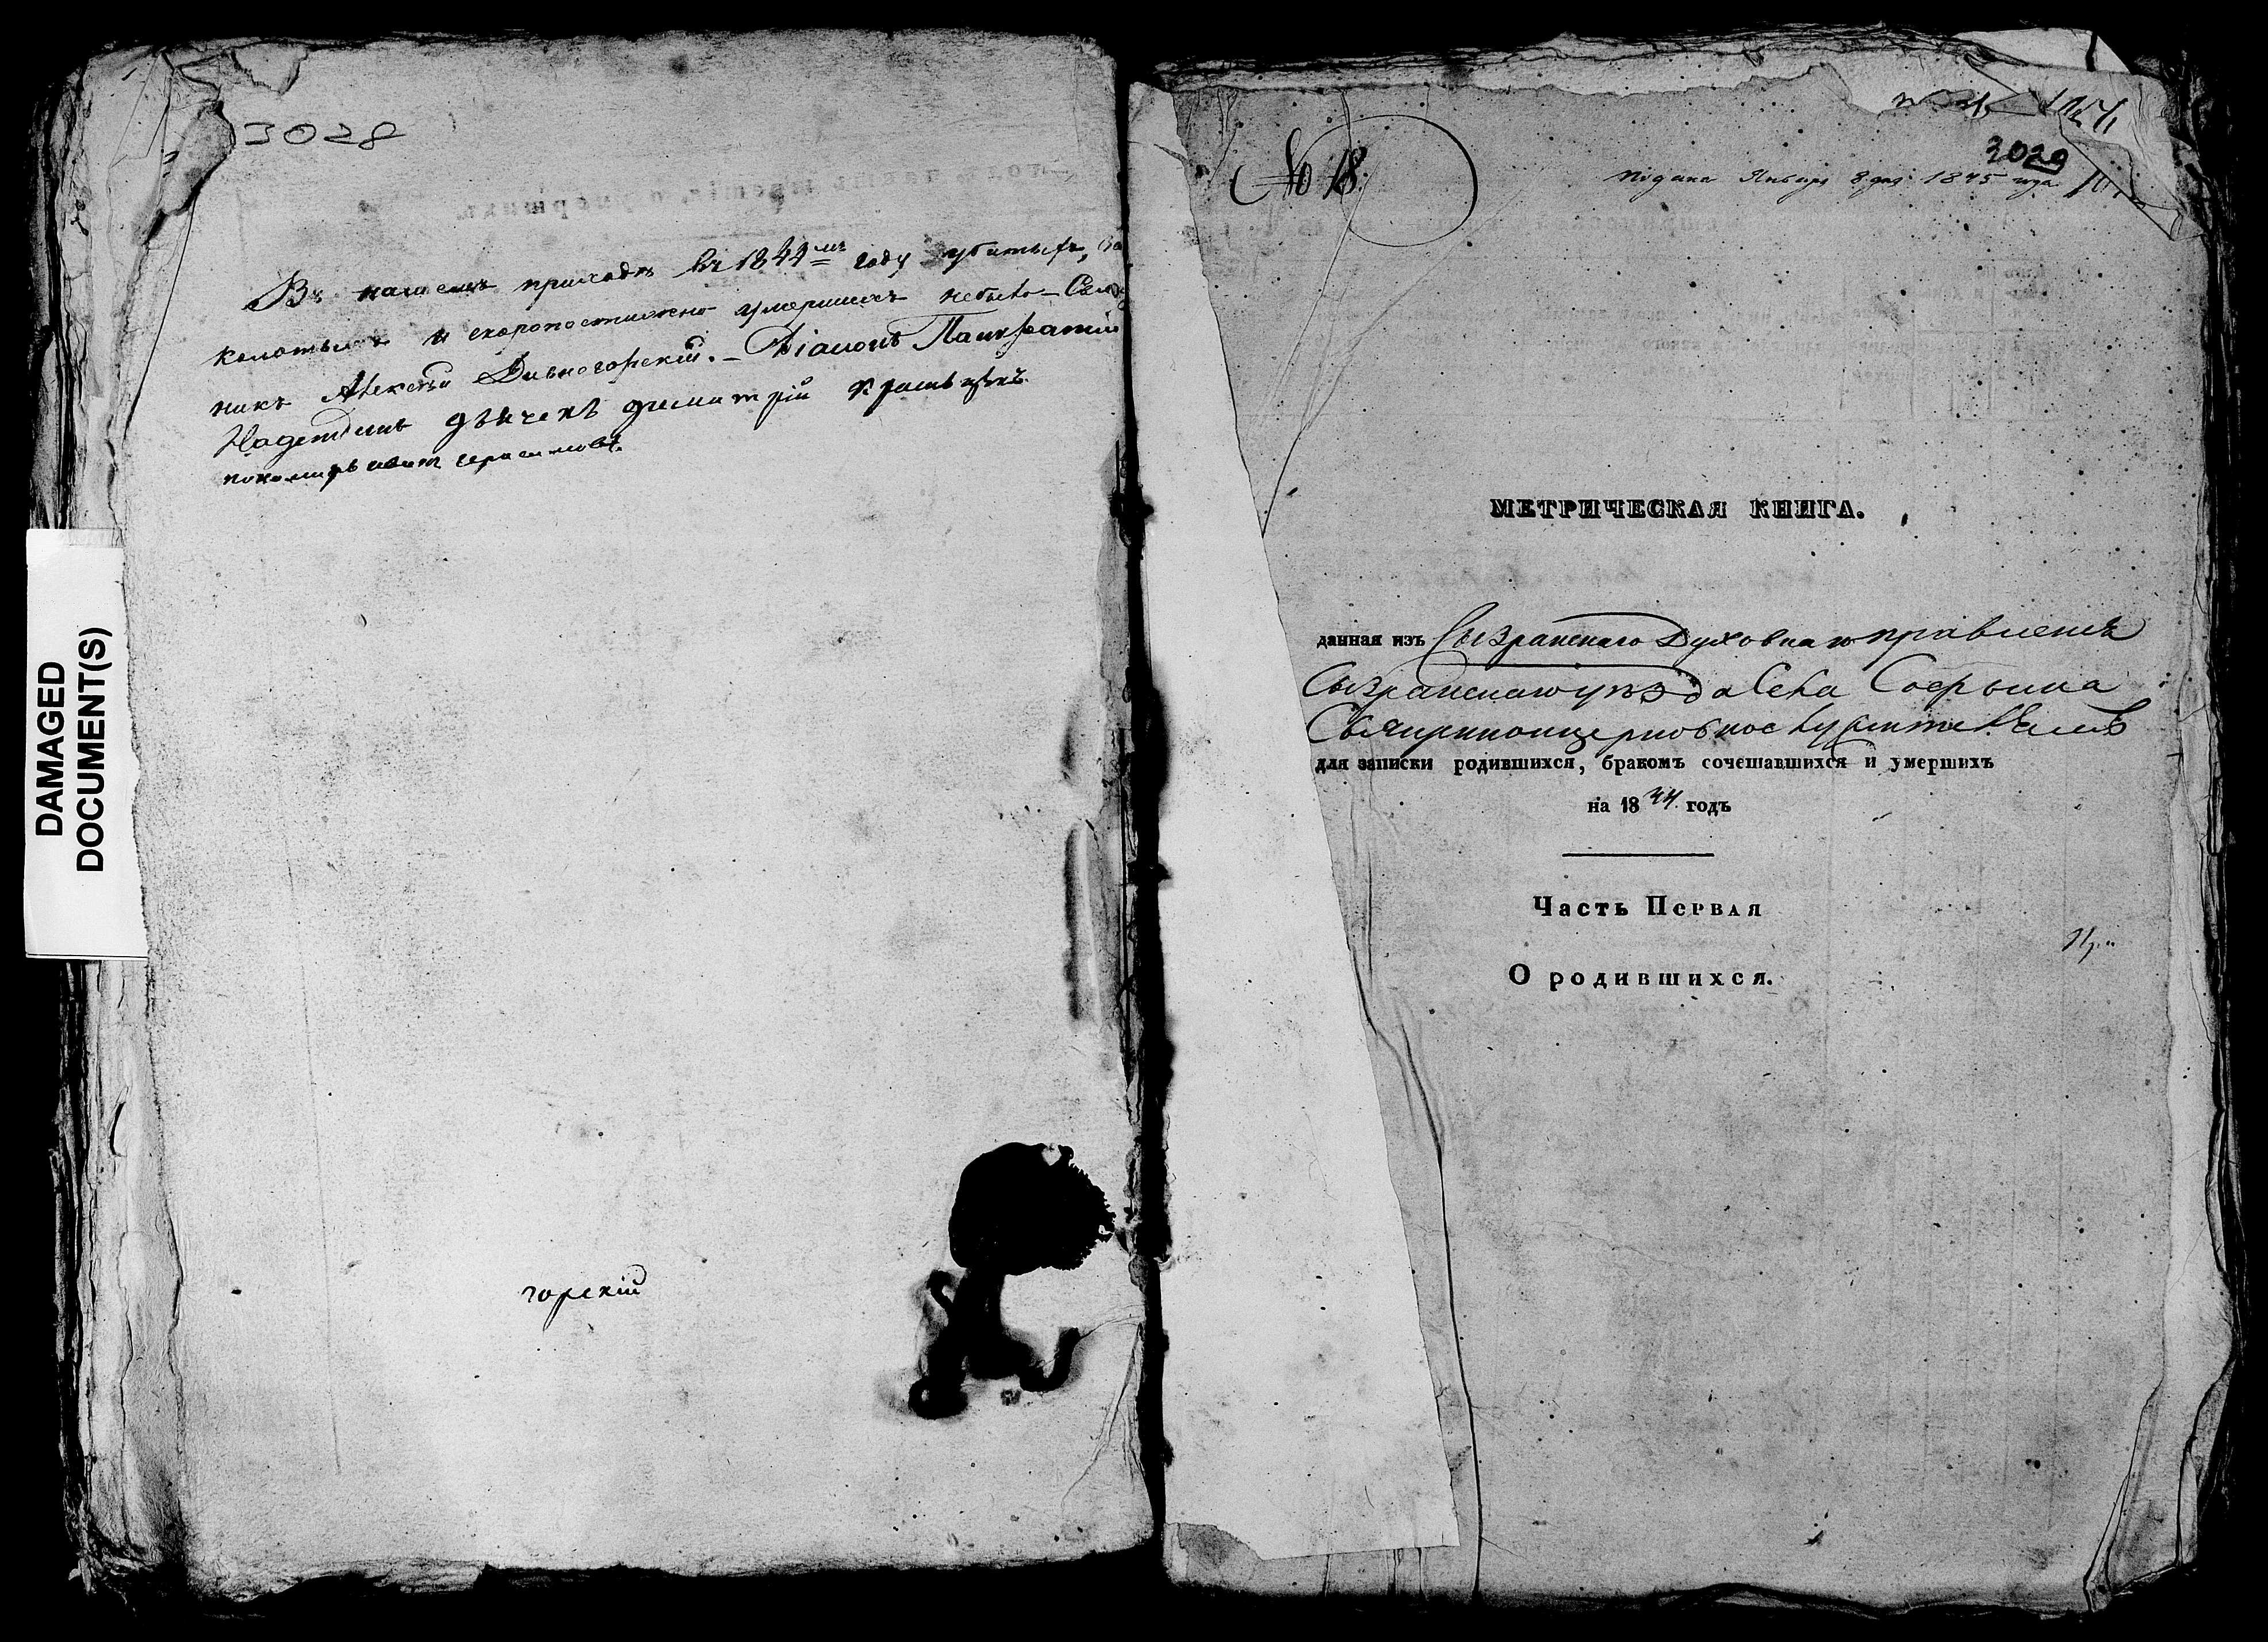 3028
Въ нашемъ приходѣ въ 1844мъ году убитыхъ, за
колотыхъ и скоропостижно умершихъ небыло – Свящ
никъ Алексѣй Дивногорскій. – Діаконъ Панкратій
Надеждинъ дьячекъ димитрій
пономарь иванъ герасимовъ.
горскій
DAMAGED
DOCUMENT(S)
№ 18.
3029
подана Января 8 дня 1845 года
МЕТРИЧЕСКАЯ КНИГА.
данная изъ Сызранскаго Духовнаго правленія
Сызранскаго уѣзда Села
Священноцерковнослужителямъ
для записки родившихся, бракомъ сочетавшихся и умершихъ
на 1844 годъ
Часть Первая
О родившихся.